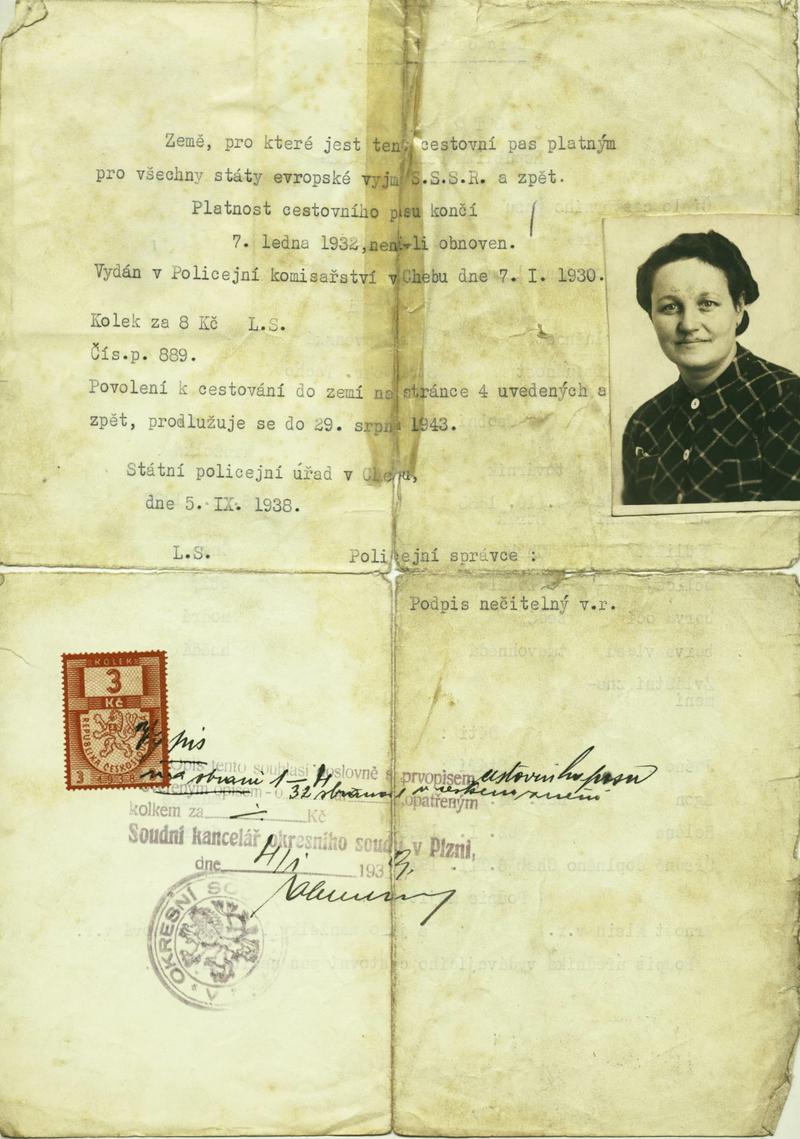 Země, pro které jest tento cestovní pas platným
pro všechny státy evropské vyjm S.S.S.R. a zpět.
Platnost cestovního pasu končí
7. ledna 1932,není-li obnoven.
Vydán v Policejní komisařství v Chebu dne 7. I. 1930.
Kolek za 8 Kč L.S.
Čís.p. 889.
Povolení k cestování do zemí na stránce 4 uvedených a
zpět, prodlužuje se do 29. srpna 1943.
Státní policejní úřad v Chebu,
dne 5. IX. 1938.
L.S. Policejní správce :
Podpis nečitelný v.r.
KOLEK
3
Kč
REPUBLIKA ČESKOSL
3 1938
Výpis
tento souhlasí doslovně s prvopisem cestovního pasu
opatřeným
kolkem za Kč
Soudní kancelář okresního soudu v Plzni,
dne 4/I 1939.
OKRESNÍ SO